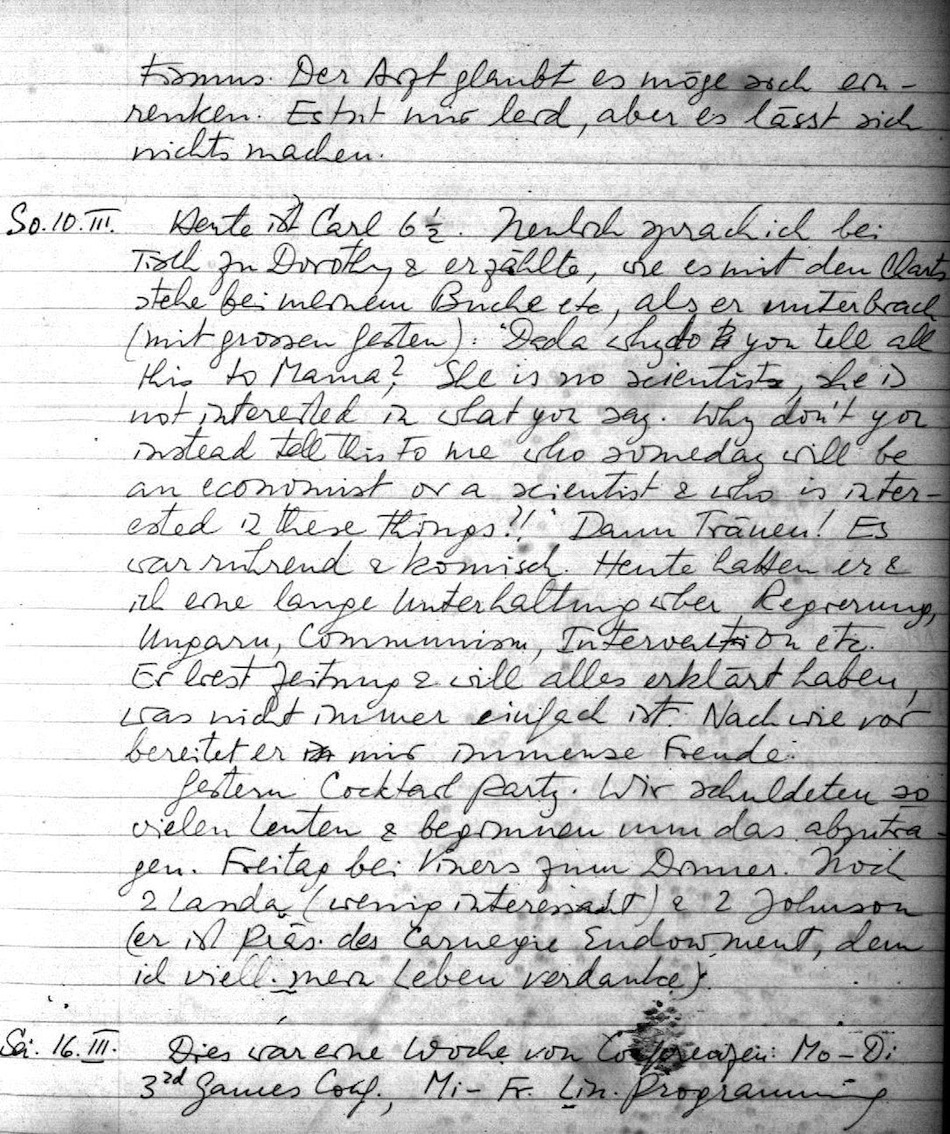 tismus. Der Arzt glaubt es möge sich ein-
renken. Es tut mir leid, aber es lässt sich
nichts machen.
So. 10. III. Heute ist Carl 6 ½. Neulich sprach ich bei
Tisch zu Dorothy & erzählte, wie es mit den Charts
stehe bei meinem Buche etc, als er unterbrach
(mit grossen Gesten): "Dada why do you tell all
this to Mama? She is no scientist, she is
not interested in what you say. Why don't you
instead tell this to me who someday will be
an economist or a scientist & who is inter-
ested in these things?!" Dann Tränen! Es
war rührend & komisch. Heute hatten er &
ich eine lange Unterhaltung über Regierung,
Ungarn, Communism, Intervention etc.
Er liest Zeitung & will alles erklärt haben,
was nicht immer einfach ist. Nach wie vor
bereitet er mir immense Freude.
Gestern Cocktail party. Wir schuldeten so
vielen Leuten & beginnen nun das abzutra-
gen. Freitag bei Viners zum Dinner. Noch
2 Landa (wenig interessant) & 2 Johnson
(er ist Präs. des Carnegie Endowment, dem
ich viell. mein Leben verdanke).
16. III. Dies war eine Woche von Conferenzen: Mo - Di
3rd Games Conf., Mi - Fr. Lin. Programming